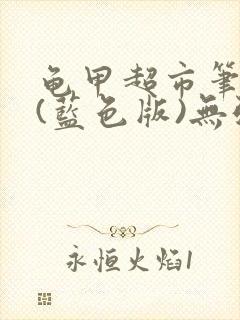 龟甲超市筆
(藍色版)無
永恒火焰1